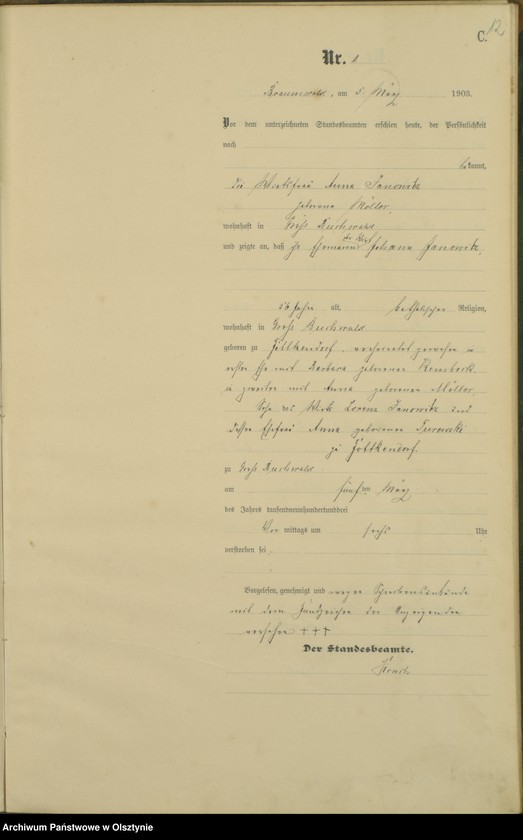 12
C.
Nr. 8
Braunswalde, am 5. März 1903.
Vor dem unterzeichneten Standesbeamten erschien heute, der Persönlichkeit
nach
bekannt,
die Wirtsfrau Anna Janowitz
geborene Möller,
wohnhaft in Groß Buchwald
und zeigte an, daß ihr Ehemann der Wirt Johann Janowitz,
56 Jahre alt, katholischer Religion,
wohnhaft in Groß Buchwald
geboren zu Jöttkendorf, verheiratet gewesen in
erster Ehe mit Barbara geborenen
in zweiter mit Anna geborenen Möller,
Sohn des Wirts Lorenz Janowitz und
dessen Ehefrau Anna geborenen
zu Jöttkendorf
zu Groß Buchwald
am fünften März
des Jahres tausendneunhundertunddrei
Vor mittags um sechs Uhr
verstorben sei.
Vorgelesen, genehmigt und wegen Schreibensunkunde
mit dem Handzeichen der Anzeigenden
versehen †††
Der Standesbeamte.
Archiwum Państwowe w Olsztynie